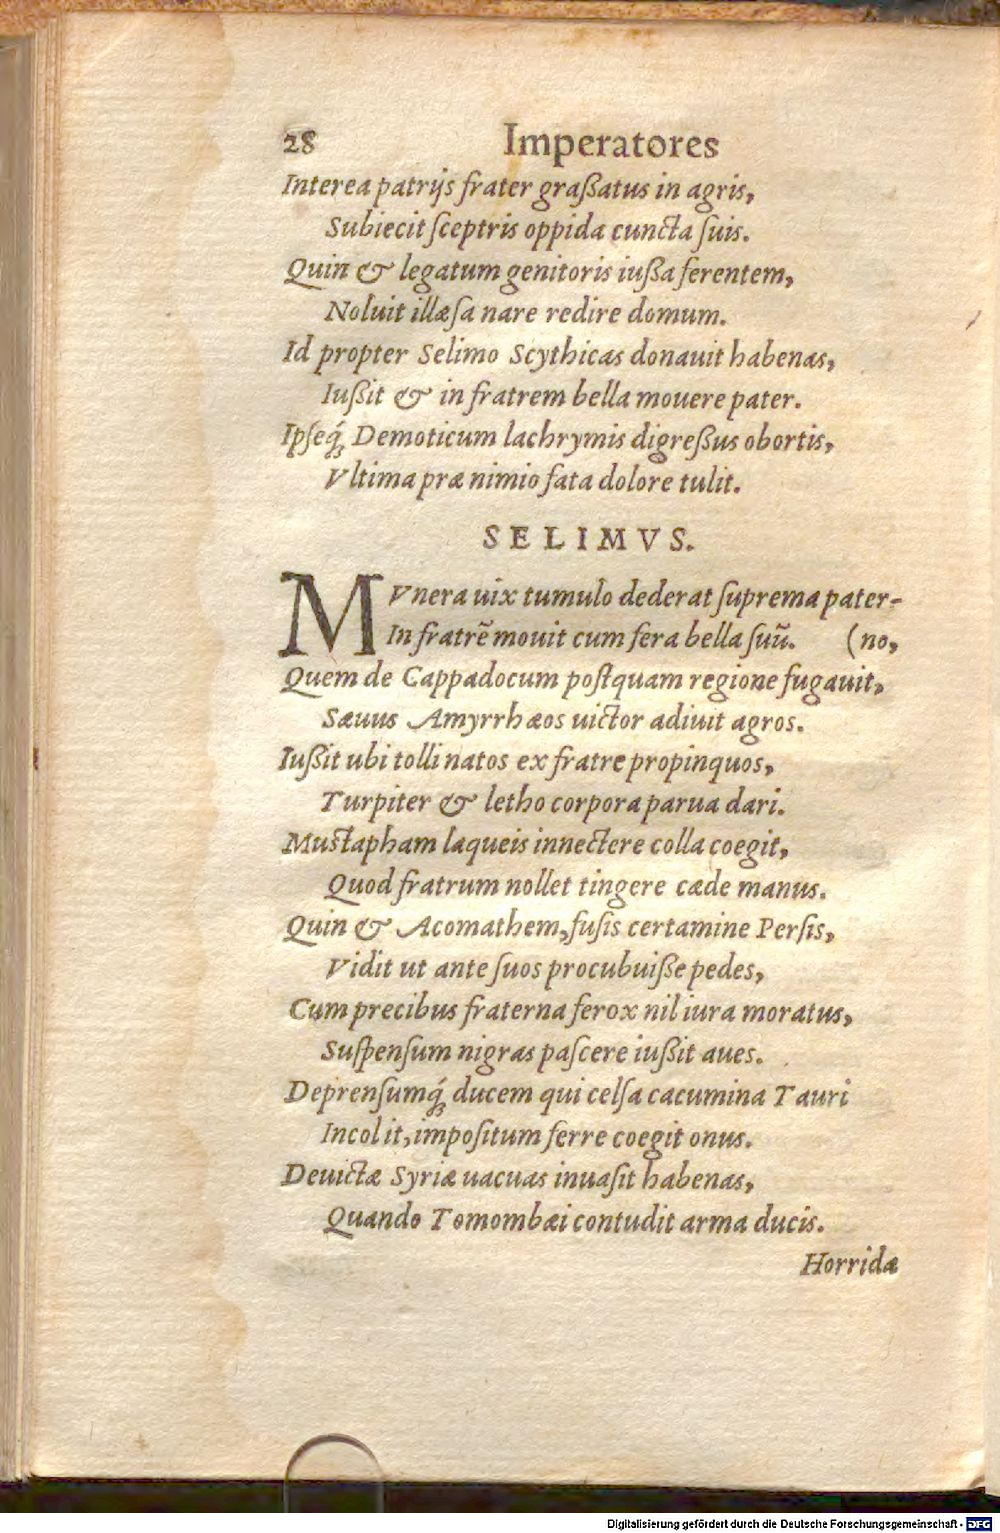 28 Imperatores
Interea patrijs frater graßatus in agris,
Subiecit ſceptris oppida cuncta ſuis.
Quin & legatum genitoris iußa ferentem,
Noluit illæſa nare redire domum.
Id propter Selimo Scythicas donauit habenas,
Iußit & in fratrem bella mouere pater.
Ipſeq́; Demoticum lachrymis digreßus obortis,
Vltima præ nimio fata dolore tulit.
SELIMVS.
MVnera uix tumulo dederat ſuprema pater-
In fratrẽ mouit cum fera bella ſuũ. (no,
Quem de Cappadocum poſtquam regione fugauit,
Sæuus Amyrrhæos uictor adiuit agros.
Iußit ubi tolli natos ex fratre propinquos,
Turpiter & letho corpora parua dari.
Muſtapham laqueis innectere colla coegit,
Quod fratrum nollet tingere cæde manus.
Quin & Acomathem, fuſis certamine Perſis,
Vidit ut ante ſuos procubuiße pedes,
Cum precibus fraterna ferox nil iura moratus,
Suſpenſum nigras paſcere iußit aues.
Deprenſumq́; ducem qui celſa cacumina Tauri
Incolit, impoſitum ferre coegit onus.
Deuictæ Syriæ uacuas inuaſit habenas,
Quando Tomombæi contudit arma ducis.
Horridæ
Digitalisierung gefördert durch die Deutsche Forschungsgemeinschaft - DFG